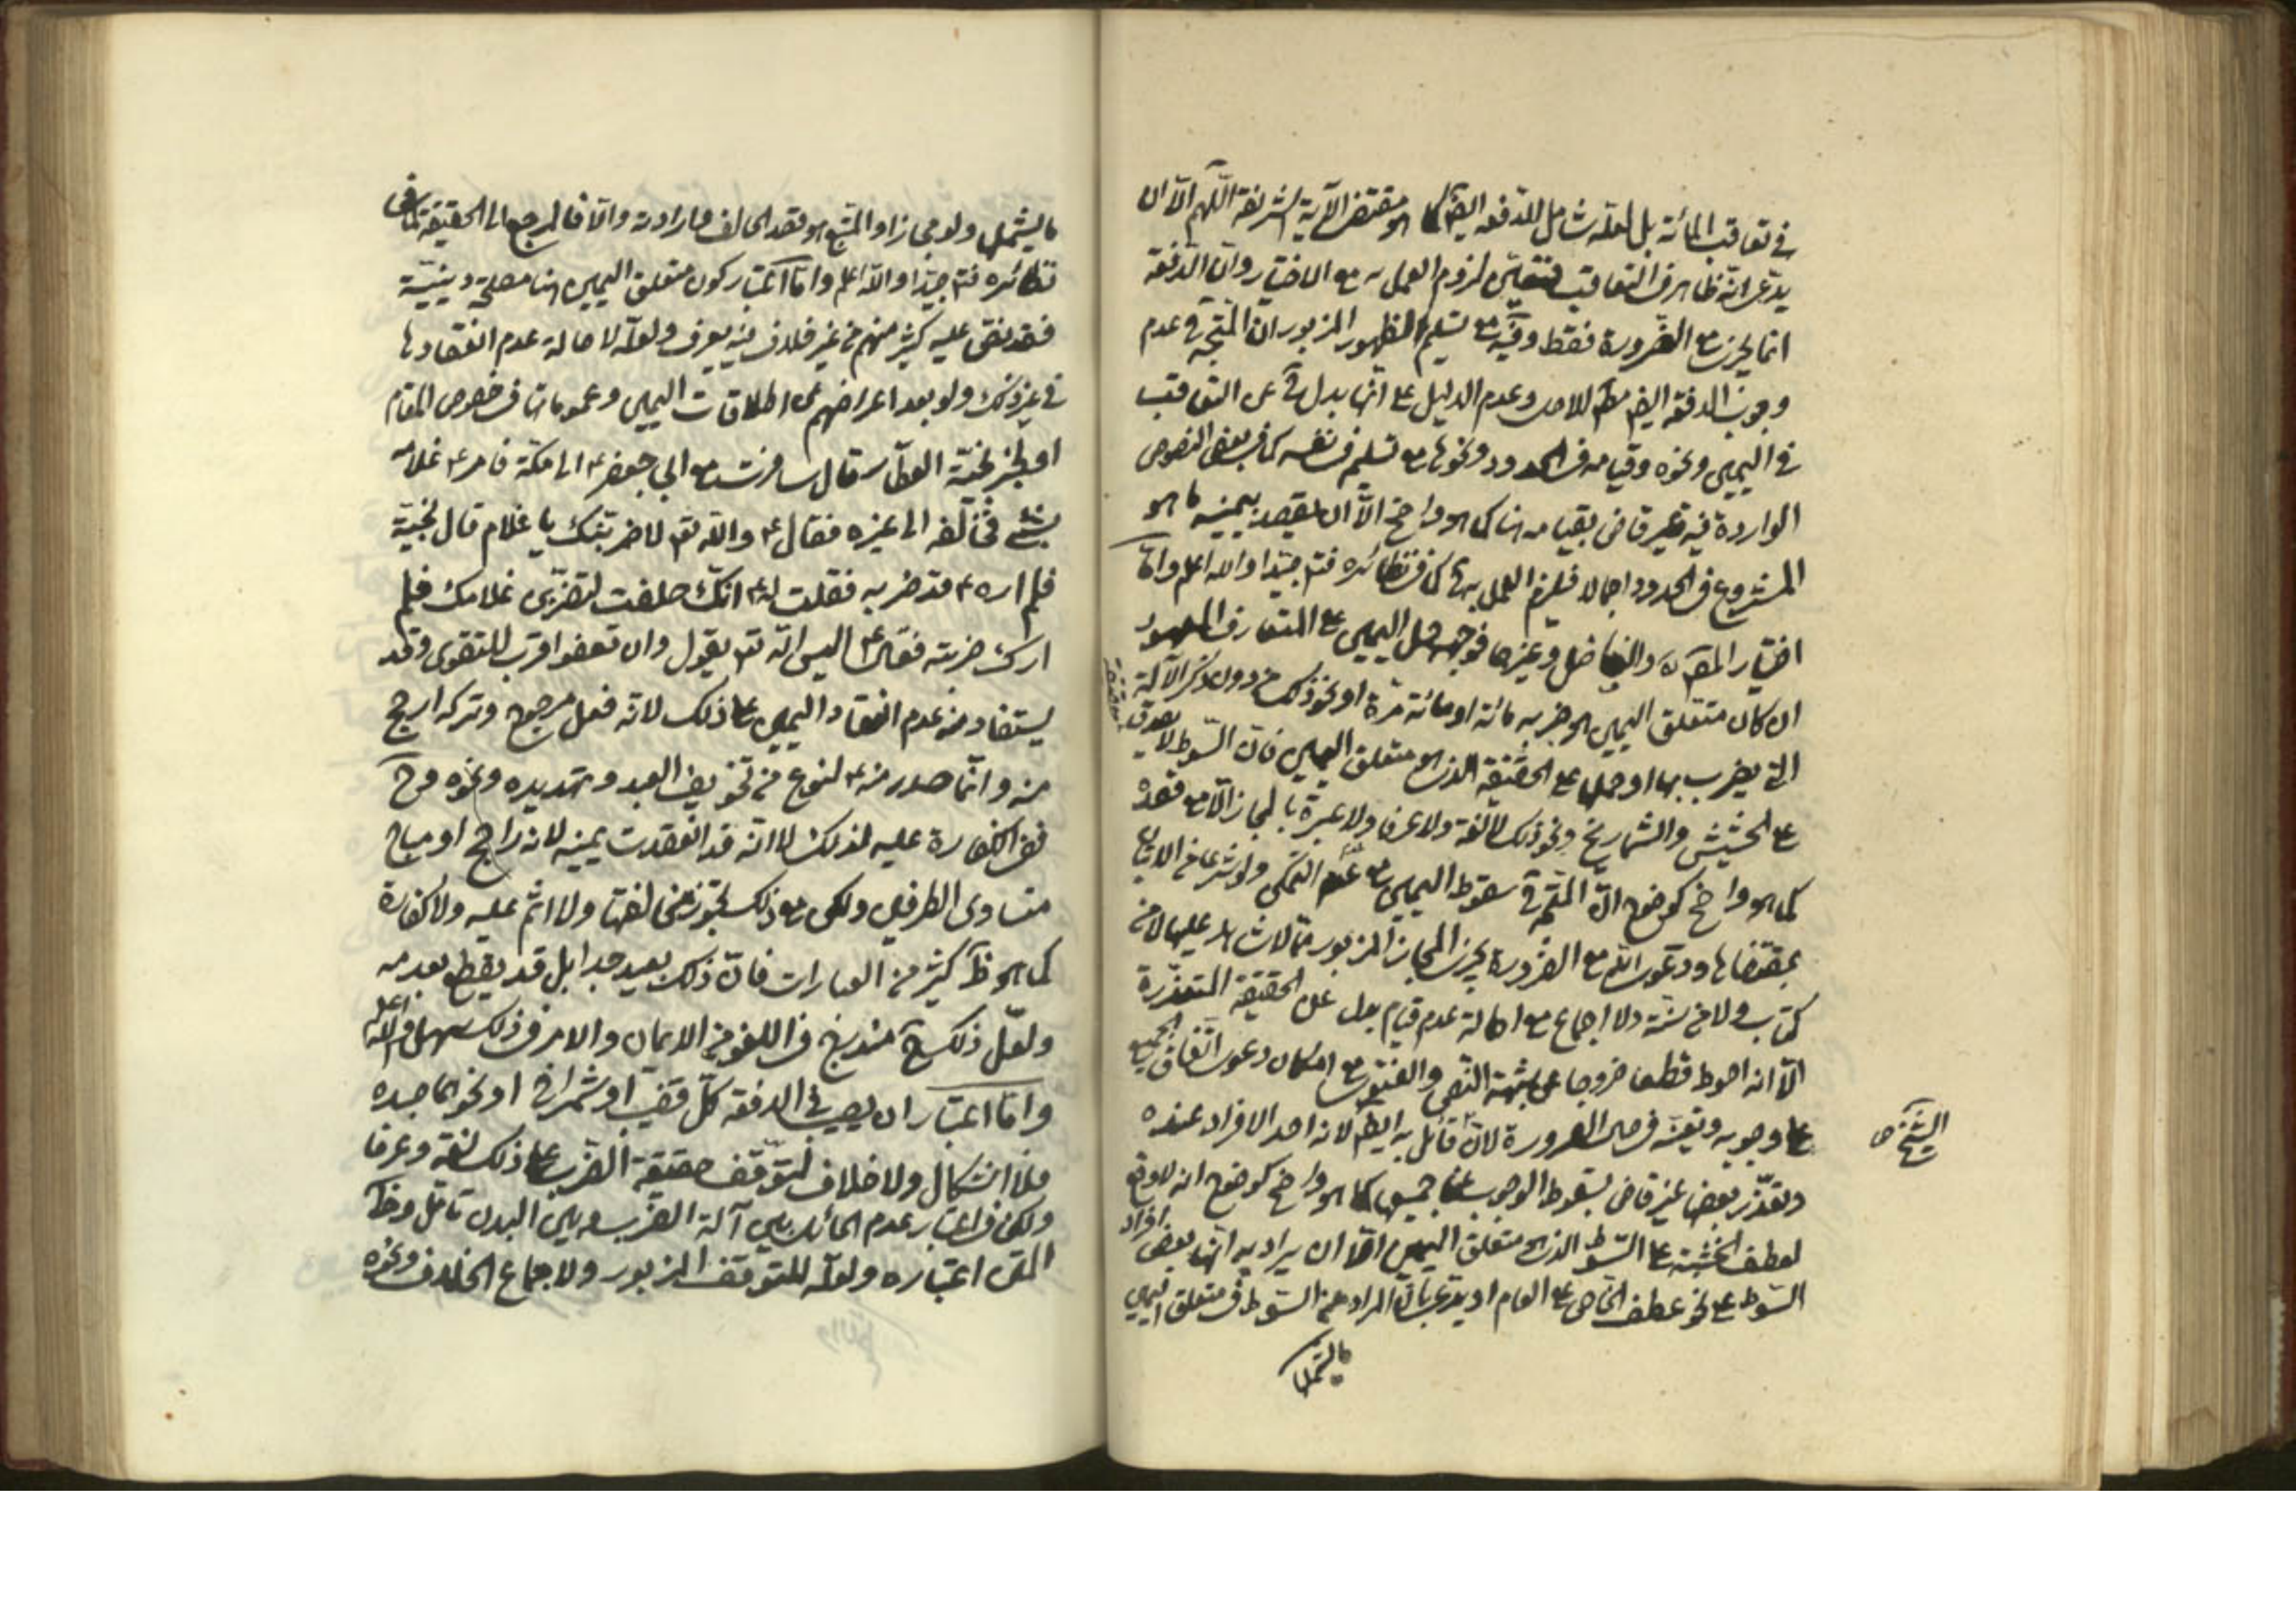 في تعاقب المائة بل لعله شامل للدفعه ايضا كما هو مقتضى الآية الشريفة اللهم الا ان
يدعى انه ظاهر في التعاقب فيتعين لزوم العمل به مع الاختيار وان الدفعة
انما يجزي مع الضرورة فقط وفيه مع تسليم الظهور المزبور ان المتجه ح عدم
وجوب الدفعه ايضا مطلقا للاصل وعدم الدليل على انها بدل ح عن التعاقب
في اليمين ونحوه وقيامه في الحدود ونحوها مع تسليمه في نفسه كما في بعض النصوص
الواردة فيه غير قاض بقيامه هنا كما هو واضح الا ان يقصد بيمينه ما هو
المشروع في الحدود اجمالا فيلزم العمل بها كما في نظائره فتم جيدا والله اعلم واما
اختيار المص ره والفاضل وغيرهما فوجهه حمل اليمين على المتعارف المعهود
ان كان متعلق اليمين هو ضربه مائة او مائة مرة او نحو ذلك من دون ذكر الآلة
التي يضرب بها او حملها على الحقيقة الذي هو متعلق اليمين فان السوط لا يصدق
على الحشيش والشماريخ ونحو ذلك لا لغة ولا عرفا ولا عبرة بالمجاز الا مع قصده
كما هو واضح كوضوح ان المتجه ح سقوط اليمين مع عدم التمكن ولو شرعا من الاتيان
بمقتضاها ودعوى انه مع الضرورة يجزي المجاز المزبور مما لا شاهد عليها لا من
كتاب ولا من سنة ولا اجماع مع اصالة عدم قيام بدل عن الحقيقة المتعذرة
الا انه احوط قطعا خروجا عن شبهة النص والفتوى مع امكان دعوى اتفاق الجميع
على وجوبه وتعينه في حال الضرورة لان الشيخ قائل به ايضا لانه احد الافراد عنده
وتعذر بعضها غير قاض بسقوط الوجوب عن جميعها كما هو واضح كوضوح انه لا وقع
لعطف الخشبة على السوط الذي هو متعلق اليمين اللهم الا ان يراد به انها بعض افراد
السوط على نحو عطف الخاص على العام او يدعى بان المراد من السوط في متعلق اليمين
ما يشملها
ما يشملها ولو مجازا والمتبع هو قصد الحالف وارادته والا فالمرجع الى الحقيقة كما في
نظائره فتم جيدا والله اعلم واما اعتبار كون متعلق اليمين هنا مصلحة دينية
فقد نص عليه كثير منهم من غير خلاف فيه يعرف ولعله لاصالة عدم انعقادها
في غير ذلك ولو بعد اعراضهم عن اطلاقات اليمين وعموماتها في خصوص المقام
او لخبر نجية العطار قال سافرت مع ابي جعفر ع الى مكة فامر ع غلامه
بشئ فخالفه الى غيره فقال ع والله لاضربنك يا غلام قال نجية
فلم اره ع قد ضربه فقلت له ع انك حلفت لتضربن غلامك فلم
ارك ضربته فقال ع اليس الله تع يقول وان تعفوا اقرب للتقوى وقد
يستفاد منه عدم انعقاد اليمين على ذلك لانه فعل مرجوح وتركه ارجح
منه وانما صدر منه ع لنوع من تخويف العبد وتهديده ونحوه وح
فنفي الكفارة عليه لذلك لا انه قد انعقدت يمينه لانه راجح او مباح
متساوى الطرفين ولكن مع ذلك يجوز مخالفتها ولا اثم عليه ولا كفارة
كما هو ظ كثير من العبارات فان ذلك بعيد جدا بل قد يقطع بعدمه
ولعل ذلك ح مندرج في اللغو من الايمان والامر في ذلك سهل والله اعلم
واما اعتبار ان يصيب في الدفعه كل قضيب او شمراخ او نحوهما جسده
فلا اشكال ولا خلاف لتوقف حقيقة الضرب على ذلك لغة وعرفا
ولكن في اعتبار عدم الحائل بين آلة الضرب وبين البدن تامل وظ
المتن اعتباره ولعله للتوقف المزبور ولاجماع الخلاف ونحوه